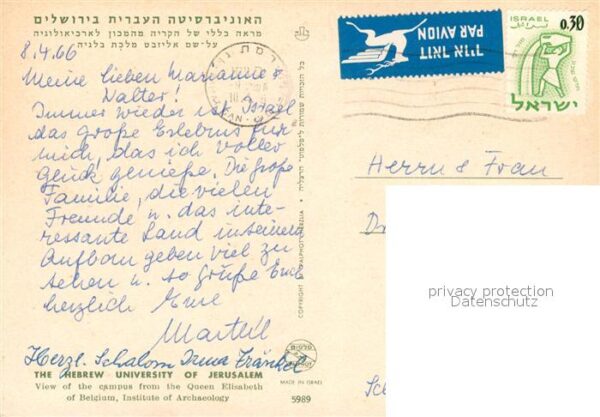 האוניברסיטה העברית בירושלים
מראה כללי של הקריה מהמכון לארכיאולוגיה
על-שם אליזבט מלכת בלגיה
8.4.66
Meine lieben Marianne &
Walter!
Immer wieder ist Israel
das große Erlebnis für
mich, das ich voller
Glück genieße. Die große
Familie, die vielen
Freunde u. das inte-
ressante Land in seinem
Aufbau geben viel zu
sehen u. so grüße Euch
herzlich Eure
Herzl. Schalom Irma Fränkel
THE HEBREW UNIVERSITY OF JERUSALEM
View of the campus from the Queen Elisabeth
of Belgium, Institute of Archaeology
5989
MADE IN ISRAEL
כל הזכויות שמורות ל"פלפוט" הרצליה
COPYRIGHT BY PALPHOT HERZLIA
דואר אויר
PAR AVION
ISRAEL
0.30
ישראל
Herrn & Frau
privacy protection
Datenschutz